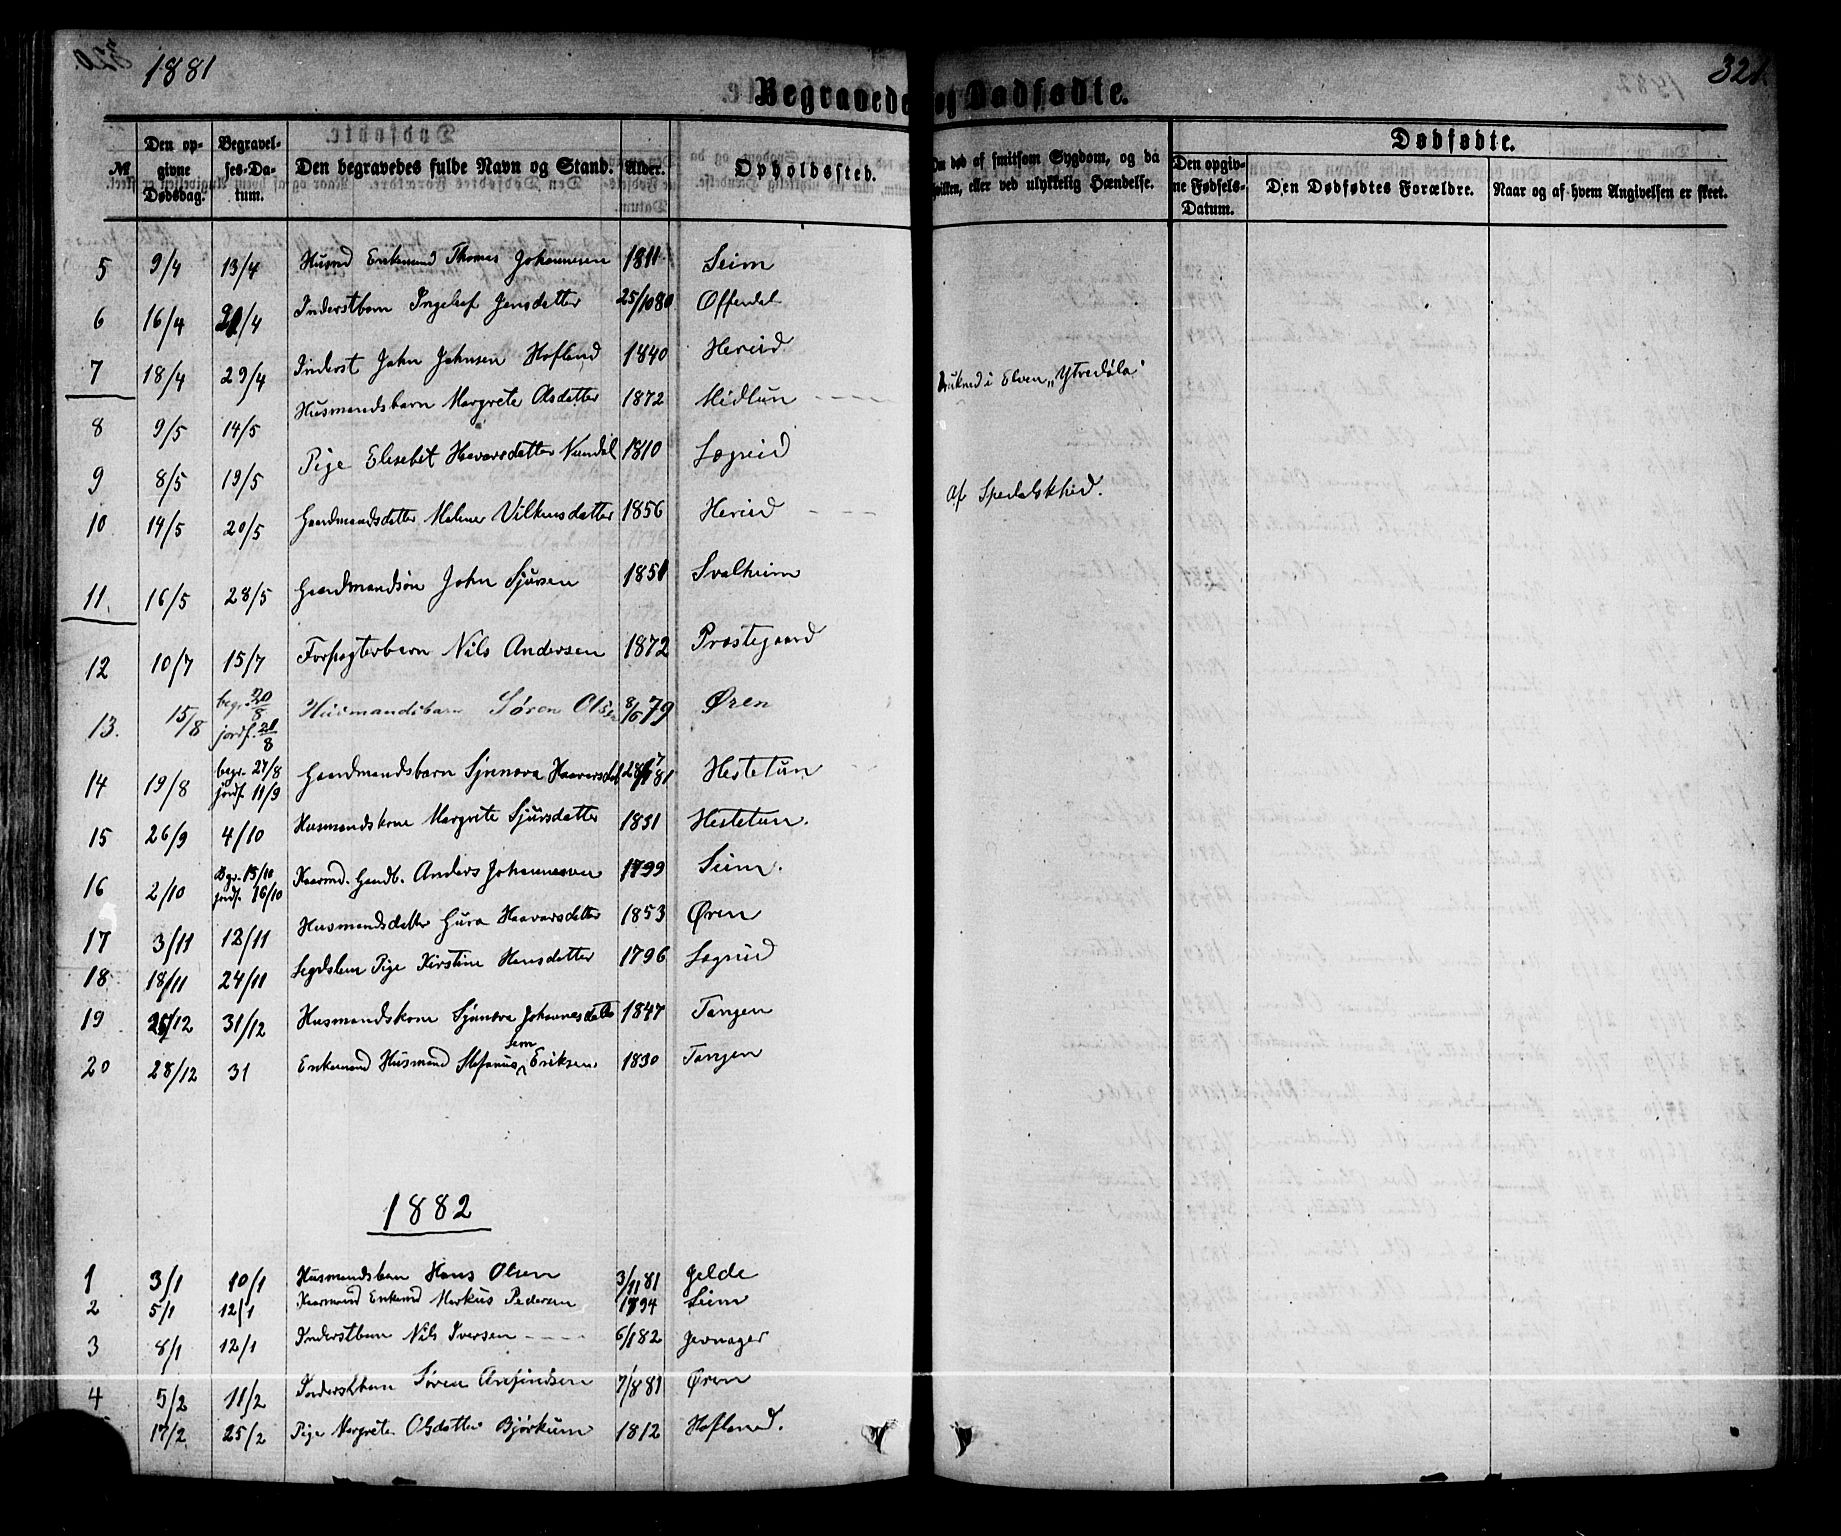 1881
321.
Begravede og Dødfødte.
№ Den opgivne Dødsdag. Begravelses-Datum. Den begravedes fulde Navn og Stand. Alder. Opholdssted. Om død af smitsom Sygdom, og da hvilken, eller ved ulykkelig Hændelse. Dødfødte. Den opgivne Fødsels-Datum. Den Dødfødtes Forældre. Naar og af hvem Angivelsen er skeet.
5 9/4 13/4 Husmd Enkemand Thomas Johannesen 1811 Seim
6 16/4 21/4 Inderstbarn Ingeleif Jensdatter 25/10 80 Offerdal
7 18/4 29/4 Inderst John Johnsen Hofland 1840 Hereid Drukned i Elven "Ytredøla"
8 9/5 14/5 Husmandsbarn Margrete Olsdatter 1872 Midtun
9 8/5 19/5 Pige Elisebet Haavarsdatter Nundal 1810 Lægreid Af Spedalskhed.
10 14/5 20/5 Gaardmandsdatter Malene Vilkensdatter 1856 Hereid
11. 16/5 28/5 Gaardmandsøn John Sjursen 1851 Svalheim
12 10/7 15/7 Forpagterbarn Nils Andersen 1872 Præstegaard
13. 15/8 begr. 20/8 jordf. 21/8 Husmandsbarn Søren Olsen 8/6 79 Øren
14 19/8 begr. 27/8 jordf. 11/9 Gaardmandsbarn Synneva Haavarsdat 81 Hestetun
15 26/9 4/10 Husmandskone Margrete Sjursdatter 1831 Hestetun.
16 2/10 Bgr. 15/10 jordf. 16/10 Kaarmd. Gaardb. Anders Johannesen 1799 Seim.
17 3/11 12/11 Husmandsdatter Gura Haavarsdatter 1853 Øren
18. 18/11 24/11 Legdslem Pige Kirstine Hansdatter 1796 Lægreid
19 25/12 31/12 Husmandskone Synneva Johannesdatter 1847 Tangen
20 28/12 31 Enkemand Husmand Stefanus Sem Eriksen 1830 Tangen
1882
1 3/1 10/1 Husmandsbarn Hans Olsen 3/11 81 Gjelde
2 5/1 12/1 Kaarmand Enkemd Markus Pedersen 1794 Seim
3 8/1 12/1 Inderstbarn Nils Iversen 6/1 82 Jevnager
4 5/2 11/2 Inderstbarn Søren Arnfindsen 7/8 81 Øren
17/2 25/2 Pige Margrete Olsdatter Bjørkum 1812 Hofland.